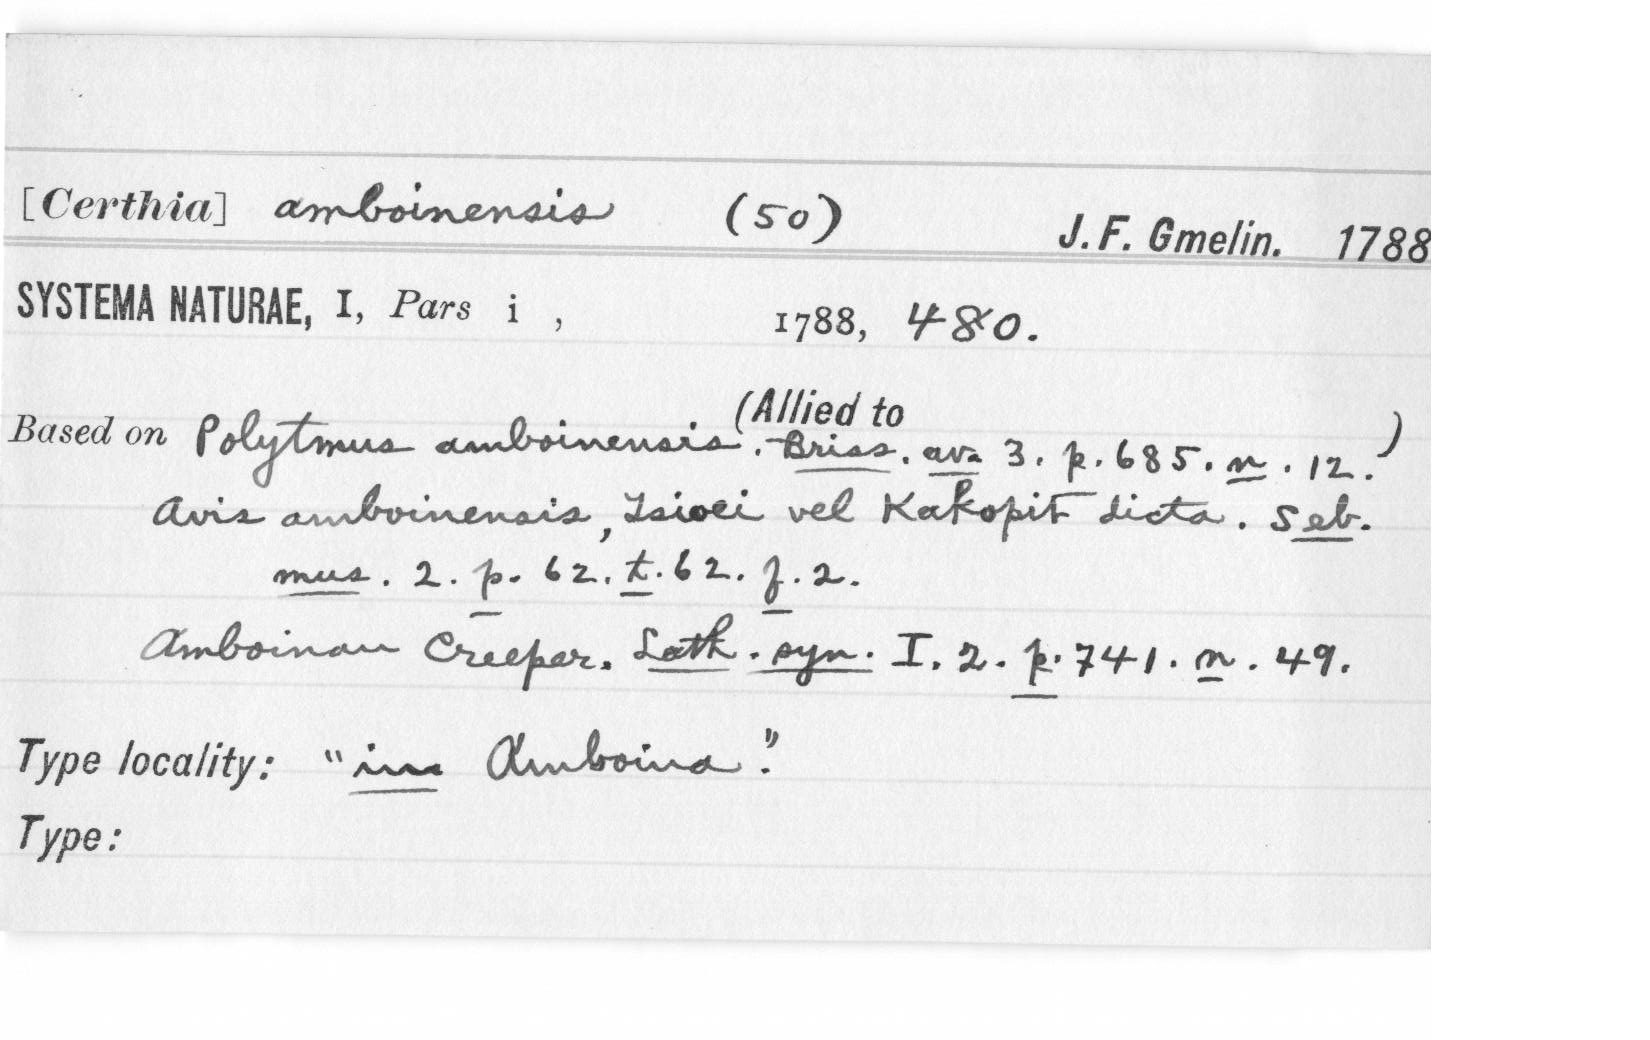 [Certhia] amboinensis (50) J. F. Gmelin. 1788
SYSTEMA NATURAE, I, Pars i , 1788, 480.
(Allied to
Based on Polytmus amboinensis. Briss. av. 3. p. 685. n. 12. )
Avis amboinensis, Tsioei vel Kakopit dicta. Seb.
mus. 2. p. 62. t. 62. f. 2.
Amboinan Creeper. Lath. syn. I. 2. p. 741. n. 49.
Type locality: "in Amboina".
Type: